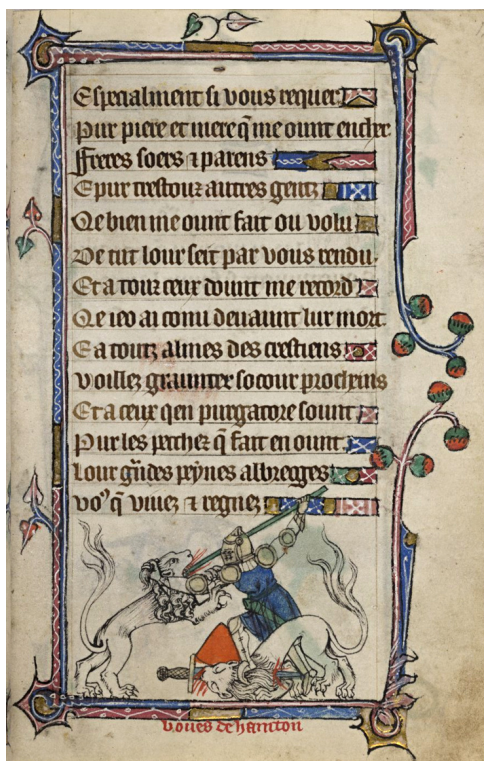 Especialment si vous requer
Pur piere et miere q̄ me ount encher
Freres soers ⁊ parens
E pur trestouz autres gentz
Qe bien me ount fait ou volu
De tut lour seit par vous rendu
Et a touz ceux dount me record
Qe ieo ai conu deuaunt lur mort
E a toutz almes des crestiens
Voillez graunter socour procheins
Et a ceux qen purgatore sount
Pur les pechez q̄ fait en ount
Lour gᷓndes peynes albregges
vo⁹ q̄ viuez ⁊ regnez
boues de hamton